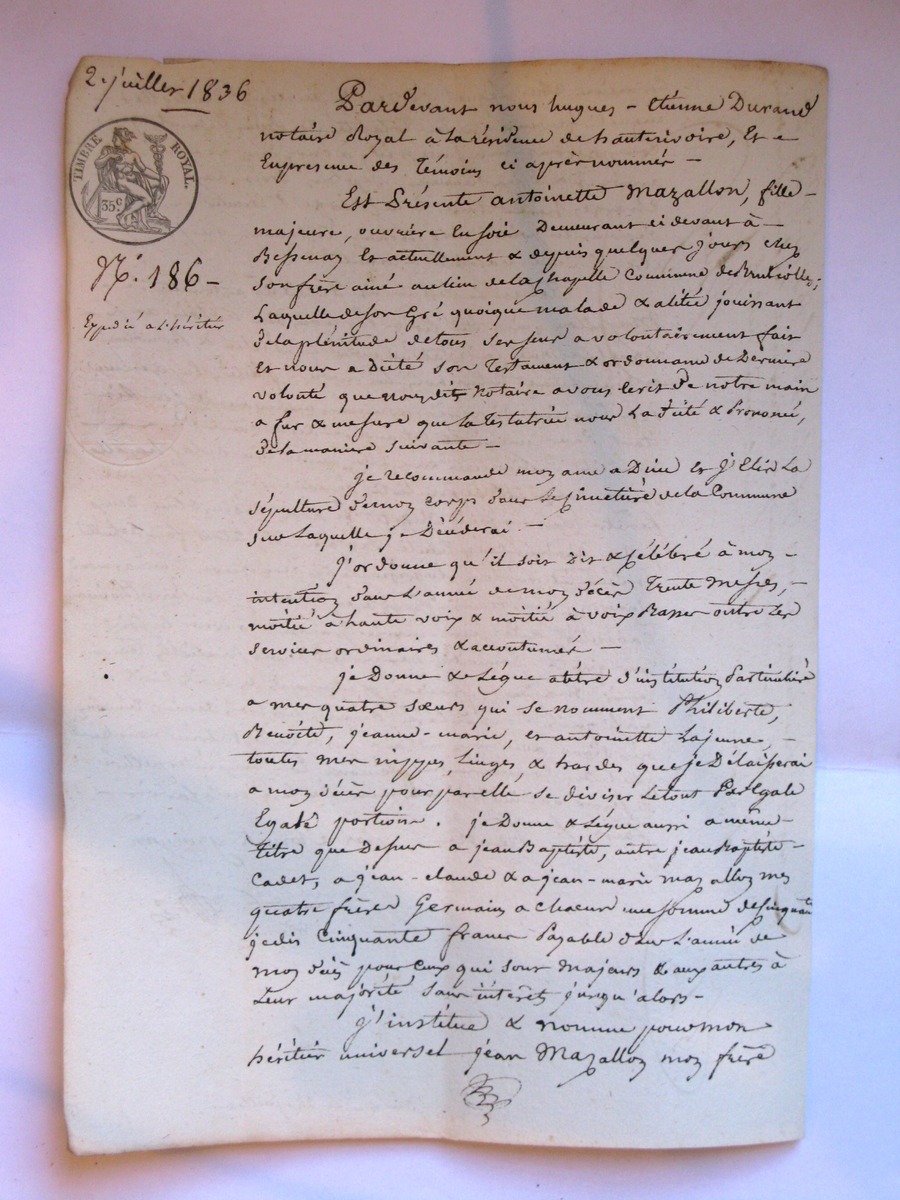 2 juillet 1836
TIMBRE ROYAL.
35c
N.° 186 -
Expédié à L'héritier
Pardevant nous hugues - étienne Durand
notaire Royal à la résidence de hauterivoire, Et
En presence des Témoins ci après nommés -
Est Présente antoinette Mazallon, fille -
majeure, ouvrière En soie Demeurant ci devant à -
Bessenay Et actuellement & depuis quelques jours chez
son frère ainé au lieu de la Chapelle Commune de Brullioles,
Laquelle de son Gré quoique malade & alitée jouissant
de la plénitude de tous ses sens a volontairement fait
Et nous a Dicté son Testament & ordonnance de Dernière
volonté que nousdit Notaire avons écrit de notre main
a fur & mesure que la Testatrice nous La dicté & Prononcé,
de la manière suivante -
je recommande mon ame a Dieu Et j'Elis La
sépulture de mon corps dans le cimetière de la Commune
sur Laquelle je Décéderai -
J'ordonne qu'il soit Dit & célébré à mon -
intention dans L'année de mon décès Trente Messes, -
moitié à haute voix & moitié à voix Basse outre Les
services ordinaires & accoutumés -
je Donne & Légue a titre d'institution Particulière
a mes quatre sœurs qui se nomment Philiberte,
Benoite, jeanne-marie, et antoinette La jeune, -
toutes mes nippes, Linges, & hardes que je Délaisserai
a mon décès pour par elle se diviser Le tout Par Egale
Egale portions. je Donne & Légue aussi a même -
titre que Dessus a jean Baptiste, autre jean Baptiste -
Cadet, a jean-claude & a jean-marie mazallon mes
quatre frères Germains a chacun une somme de cinquante
je dis Cinquante francs Payable dans L'année de
mon décès pour ceux qui sont majeurs & aux autres à
Leur majorité sans intérêts jusqu'alors -
j'institue & nomme pour mon
héritier universel jean Mazallon mon frère